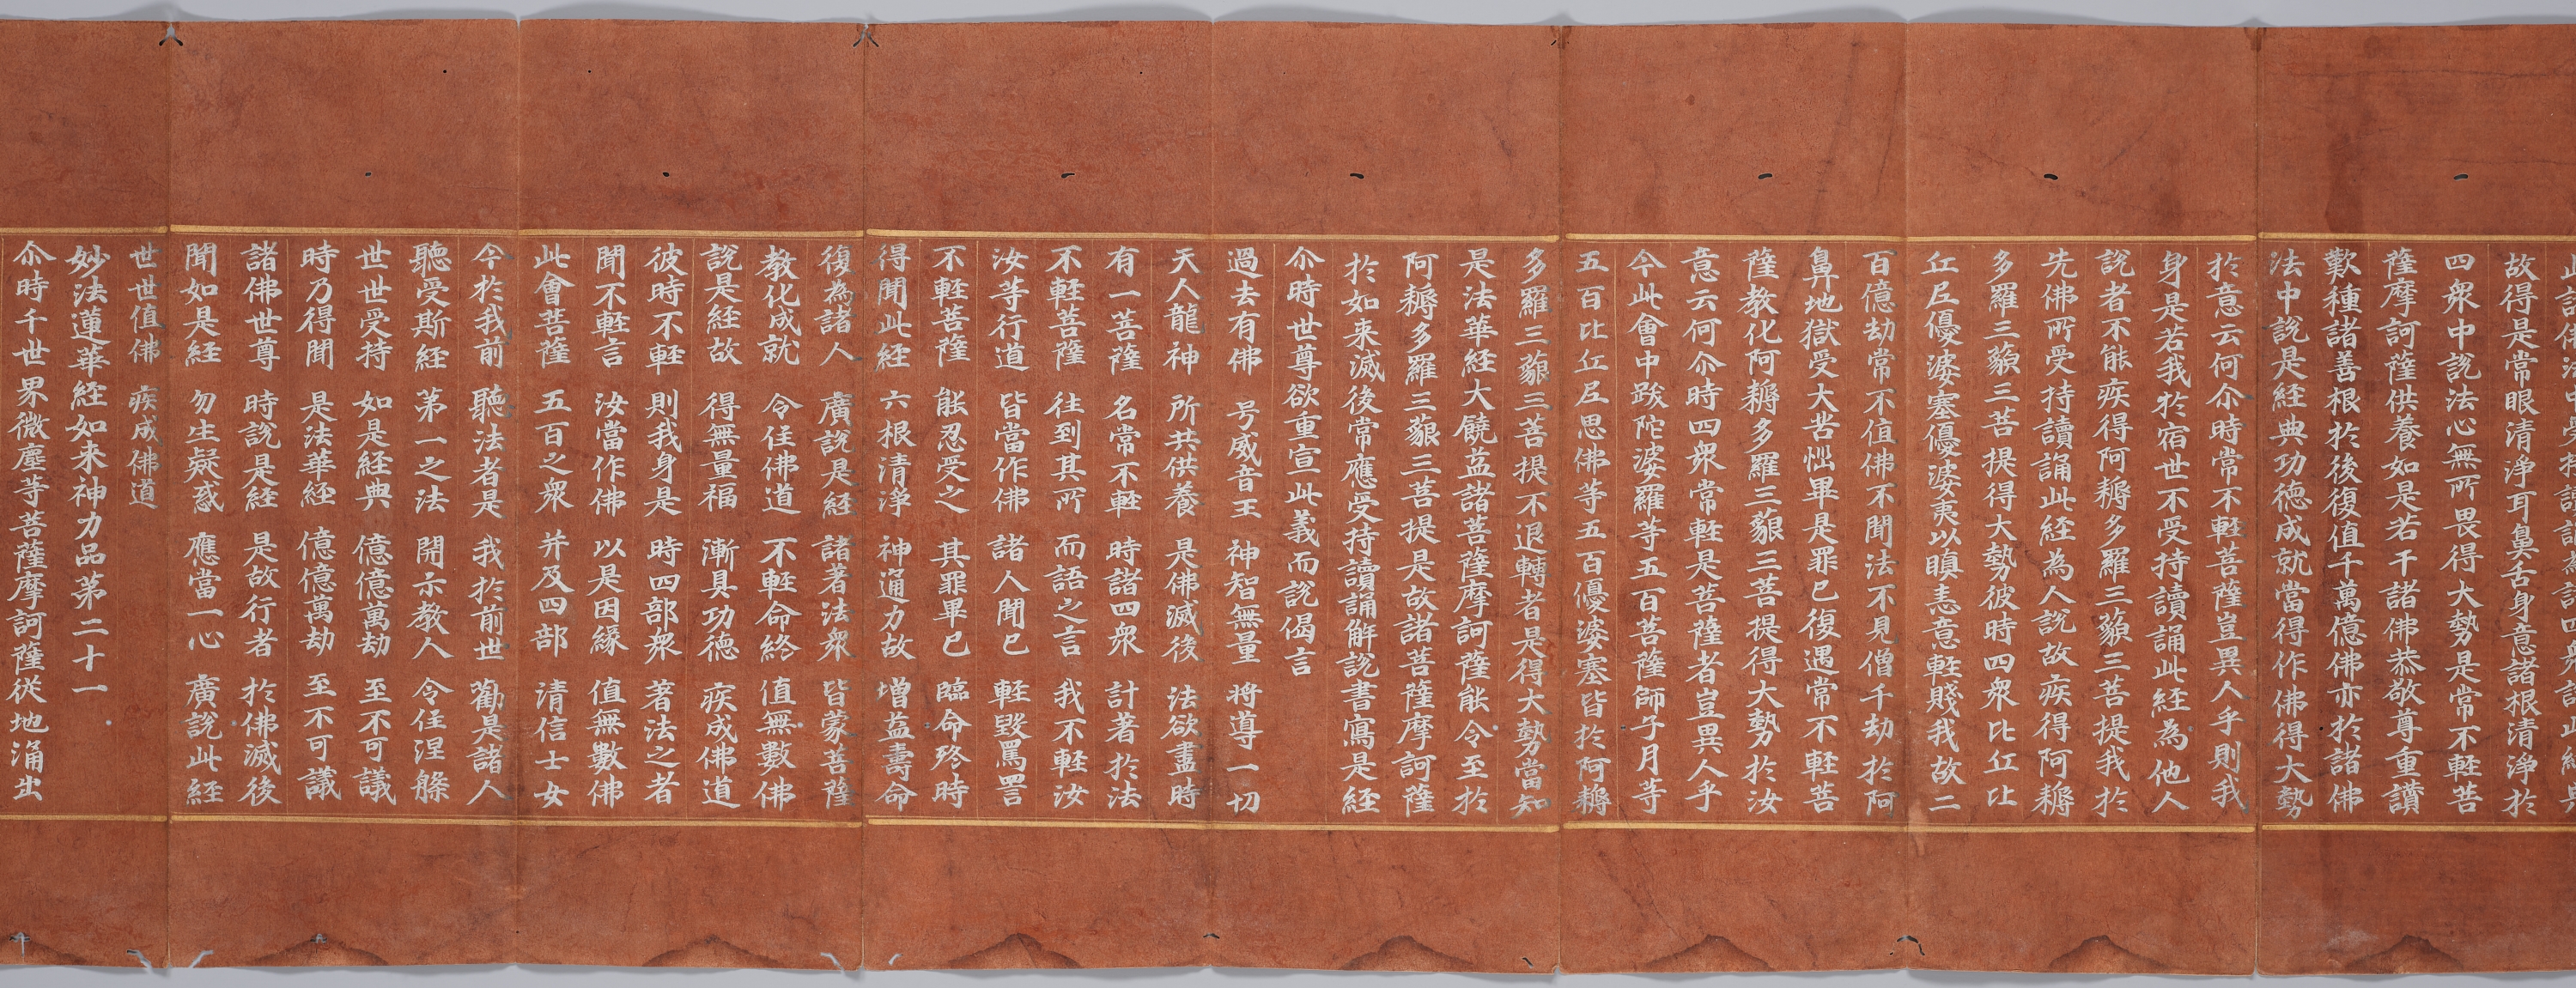 故得是常眼清淨耳鼻舌身意諸根清淨於
四衆中說法心無所畏得大勢是常不輕菩
薩摩訶薩供養如是若干諸佛恭敬尊重讚
歎種諸善根於後復值千萬億佛亦於諸佛
法中說是經典功德成就當得作佛得大勢
於意云何尒時常不輕菩薩豈異人乎則我
身是若我於宿世不受持讀誦此經為他人
說者不能疾得阿耨多羅三藐三菩提我於
先佛所受持讀誦此經為人說故疾得阿耨
多羅三藐三菩提得大勢彼時四衆比丘比
丘尼優婆塞優婆夷以瞋恚意輕賤我故二
百億劫常不值佛不聞法不見僧千劫於阿
鼻地獄受大苦惱畢是罪已復遇常不輕菩
薩教化阿耨多羅三藐三菩提得大勢於汝
意云何尒時四衆常輕是菩薩者豈異人乎
今此會中跋陀婆羅等五百菩薩師子月等
五百比丘尼思佛等五百優婆塞皆於阿耨
多羅三藐三菩提不退轉者是得大勢當知
是法華經大饒益諸菩薩摩訶薩能令至於
阿耨多羅三藐三菩提是故諸菩薩摩訶薩
於如来滅後常應受持讀誦解說書寫是經
尒時世尊欲重宣此義而說偈言
過去有佛 号威音王 神智無量 将導一切
天人龍神 所共供養 是佛滅後 法欲盡時
有一菩薩 名常不輕 時諸四衆 計著於法
不輕菩薩 往到其所 而語之言 我不輕汝
汝等行道 皆當作佛 諸人聞已 輕毀罵詈
不輕菩薩 能忍受之 其罪畢已 臨命終時
得聞此經 六根清淨 神通力故 増益壽命
復為諸人 廣說是經 諸著法衆 皆蒙菩薩
教化成就 令住佛道 不輕命終 值無數佛
說是經故 得無量福 漸具功德 疾成佛道
彼時不輕 則我身是 時四部衆 著法之者
聞不輕言 汝當作佛 以是因緣 值無數佛
此會菩薩 五百之衆 并及四部 清信士女
今於我前 聽法者是 我於前世 勸是諸人
聽受斯經 第一之法 開示教人 令住涅槃
世世受持 如是經典 億億萬劫 至不可議
時乃得聞 是法華經 億億萬劫 至不可議
諸佛世尊 時說是經 是故行者 於佛滅後
聞如是經 勿生疑惑 應當一心 廣說此經
世世值佛 疾成佛道
妙法蓮華経如来神力品第二十一
尒時千世界微塵等菩薩摩訶薩從地涌出